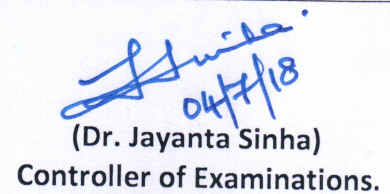 04/7/18
(Dr. Jayanta Sinha)
Controller of Examinations.